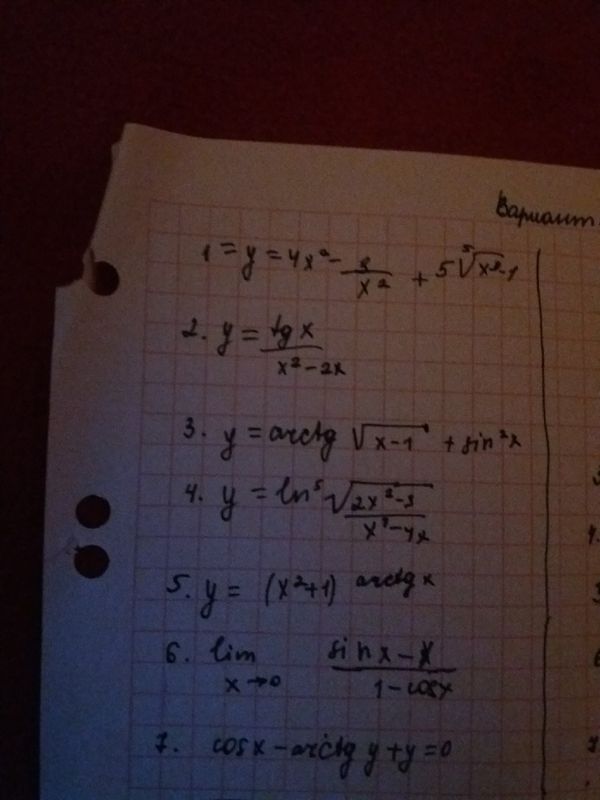 Вариант
1 = y = 4x² - 3/x² + 5 ⁵√x² - 1
2. y = tg x / x² - 2x
3. y = arctg √x-1 + sin²x
4. y = ln⁵ √2x²-3 / x³-4x
5. y = (x²+1) arctg x
6. lim x→0 sin x - x / 1 - cosx
7. cosx - arctg y + y = 0